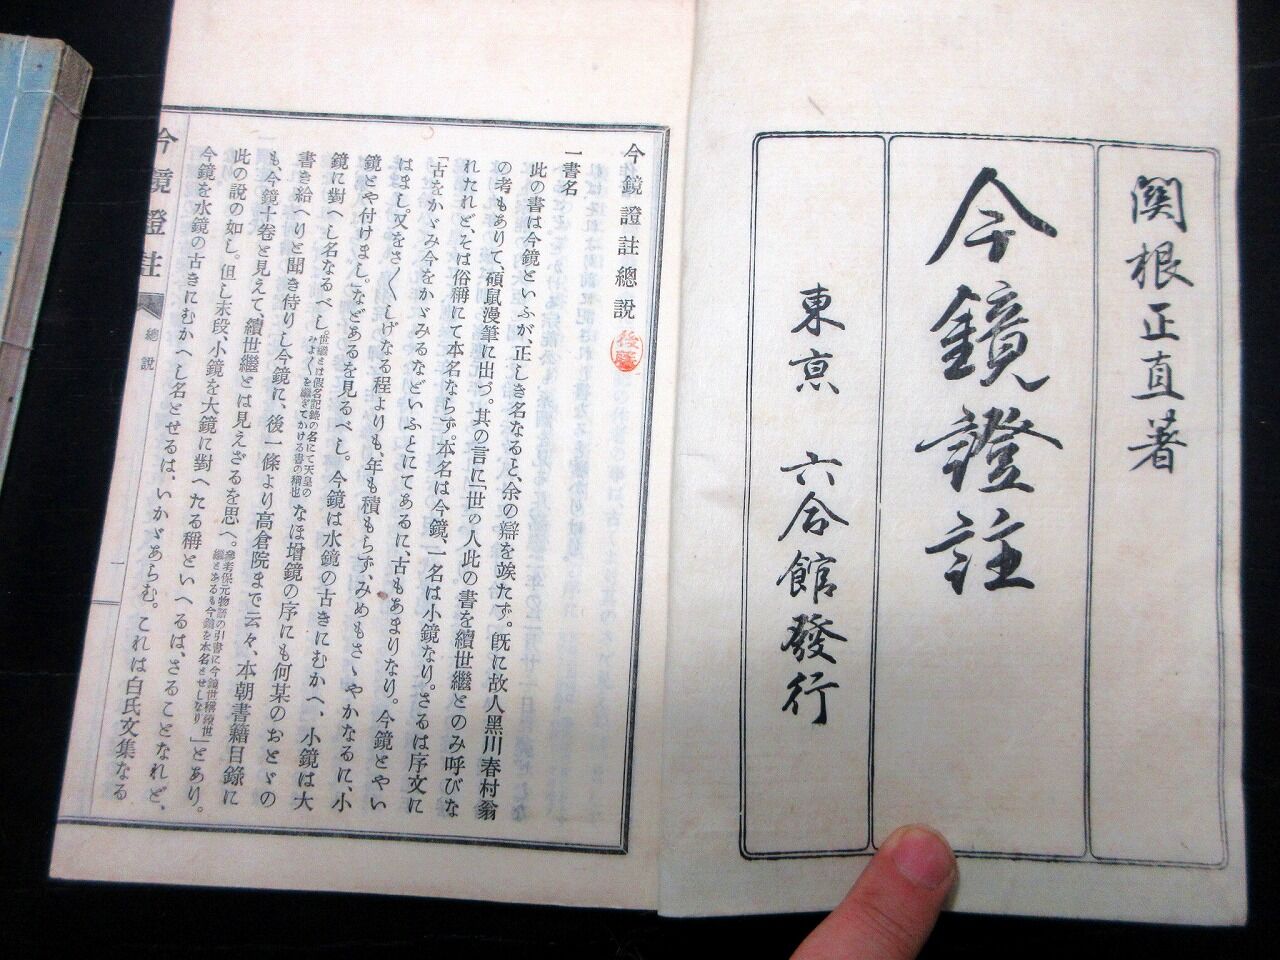 關根正直著
今鏡證註
東京 六合館發行
今鏡證註總說
後藤
一書名
此の書は今鏡といふが、正しき名なると、余の辯を竢たず。旣に故人黑川春村翁
の考もありて、碩鼠漫筆に出づ。其の言に「世の人此の書を續世繼とのみ呼びな
れたれど、そは俗稱にて本名ならず。本名は今鏡、一名は小鏡なり。さるは序文に
「古をかゞみ今をかゞみるなどいふとにてあるに、古もあまりなり。今鏡とやい
はまし。又をさ〱しげなる程よりも、年も積もらず、みめもさゝやかなるに、小
鏡とや付けまし。」などあるを見るべし。今鏡は水鏡の古きにむかへ、小鏡は大
鏡に對へし名なるべし。世繼とは假名記錄の名にて天皇の みよ〱を繼ぎてかける書の稱也 なほ增鏡の序にも何某のおとゞの
書き給へりと聞き侍りし今鏡に、後一條より高倉院まで云々、本朝書籍目錄に
も今鏡十卷と見えて、續世繼とは見えざるを思へ。參考保元物語の引書に今鏡世稱續世 繼とあるも今鏡を本名とせしなり」とあり。
此の說の如し。但し末段、小鏡を大鏡に對へたる稱といへるは、さることなれど、
今鏡を水鏡の古きにむかへし名とせるは、いかゞあらむ。これは白氏文集なる
今鏡證註
總說
一